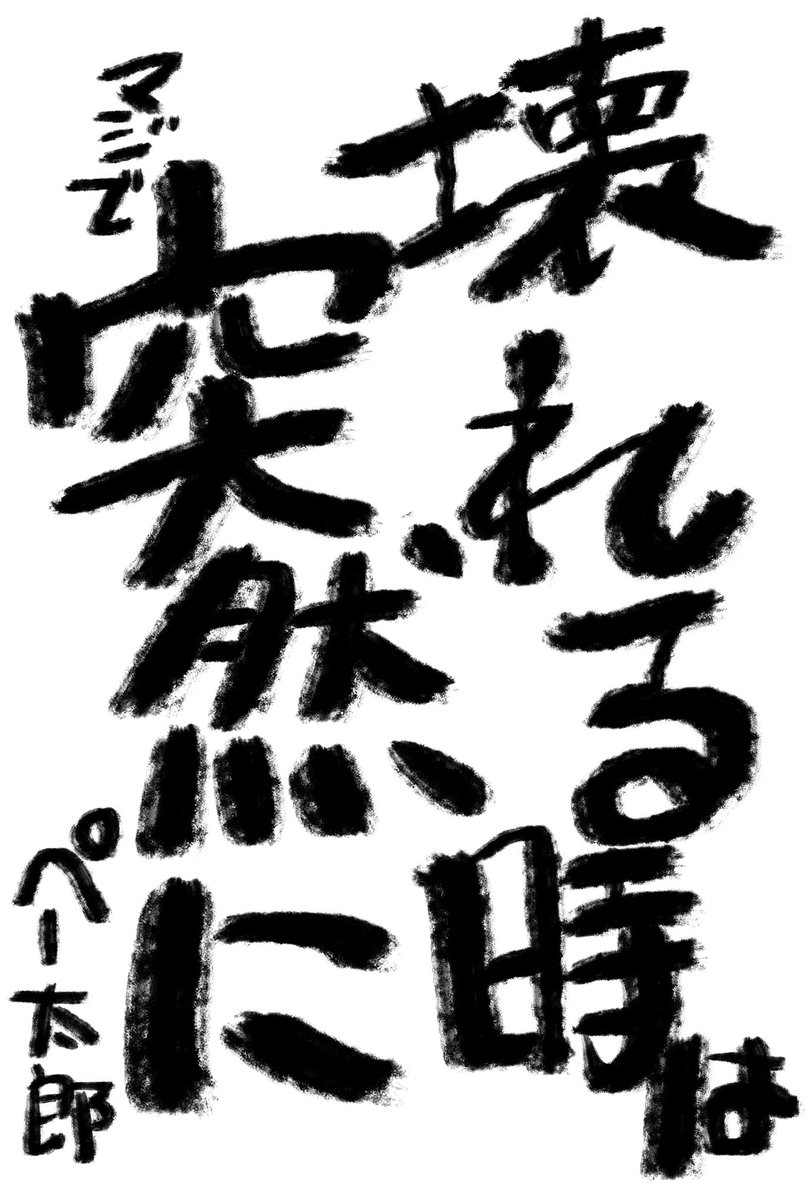 壊れる時は
マジで
突然に
ペー太郎